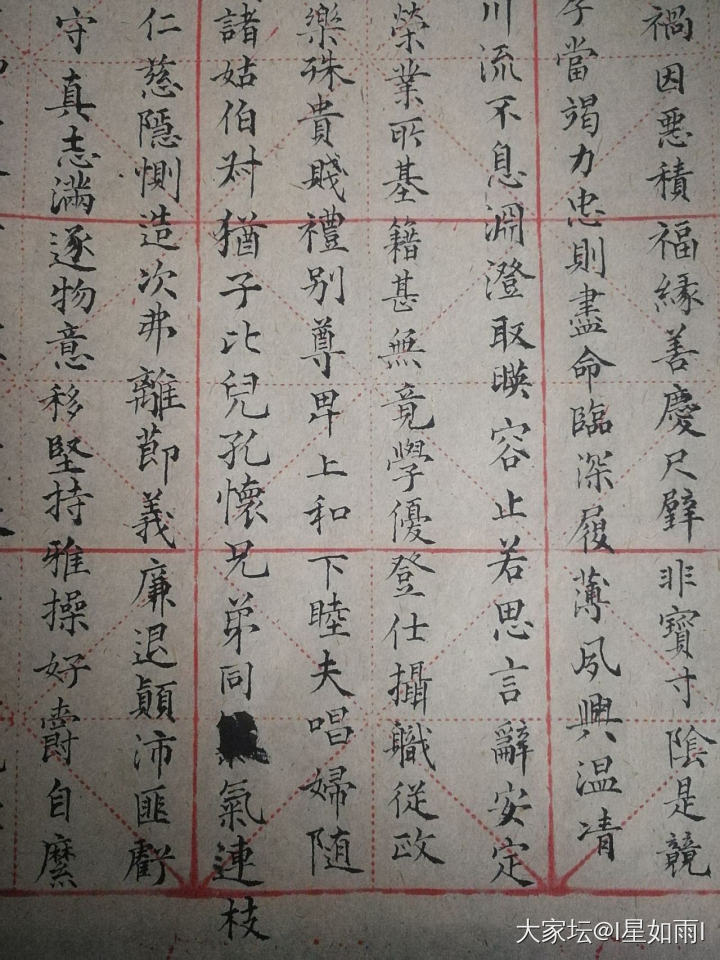 禍因惡積福緣善慶尺璧非寶寸陰是競
當竭力忠則盡命臨深履薄夙興温凊
川流不息淵澄取暎容止若思言辭安定
榮業所基籍甚無竟學優登仕攝職從政
樂殊貴賤禮别尊卑上和下睦夫唱婦随
諸姑伯叔猶子比兒孔懷兄弟同氣連枝
仁慈隱惻造次弗離節義廉退顛沛匪虧
守真志滿逐物意移堅持雅操好爵自縻
大家坛@I星如雨I